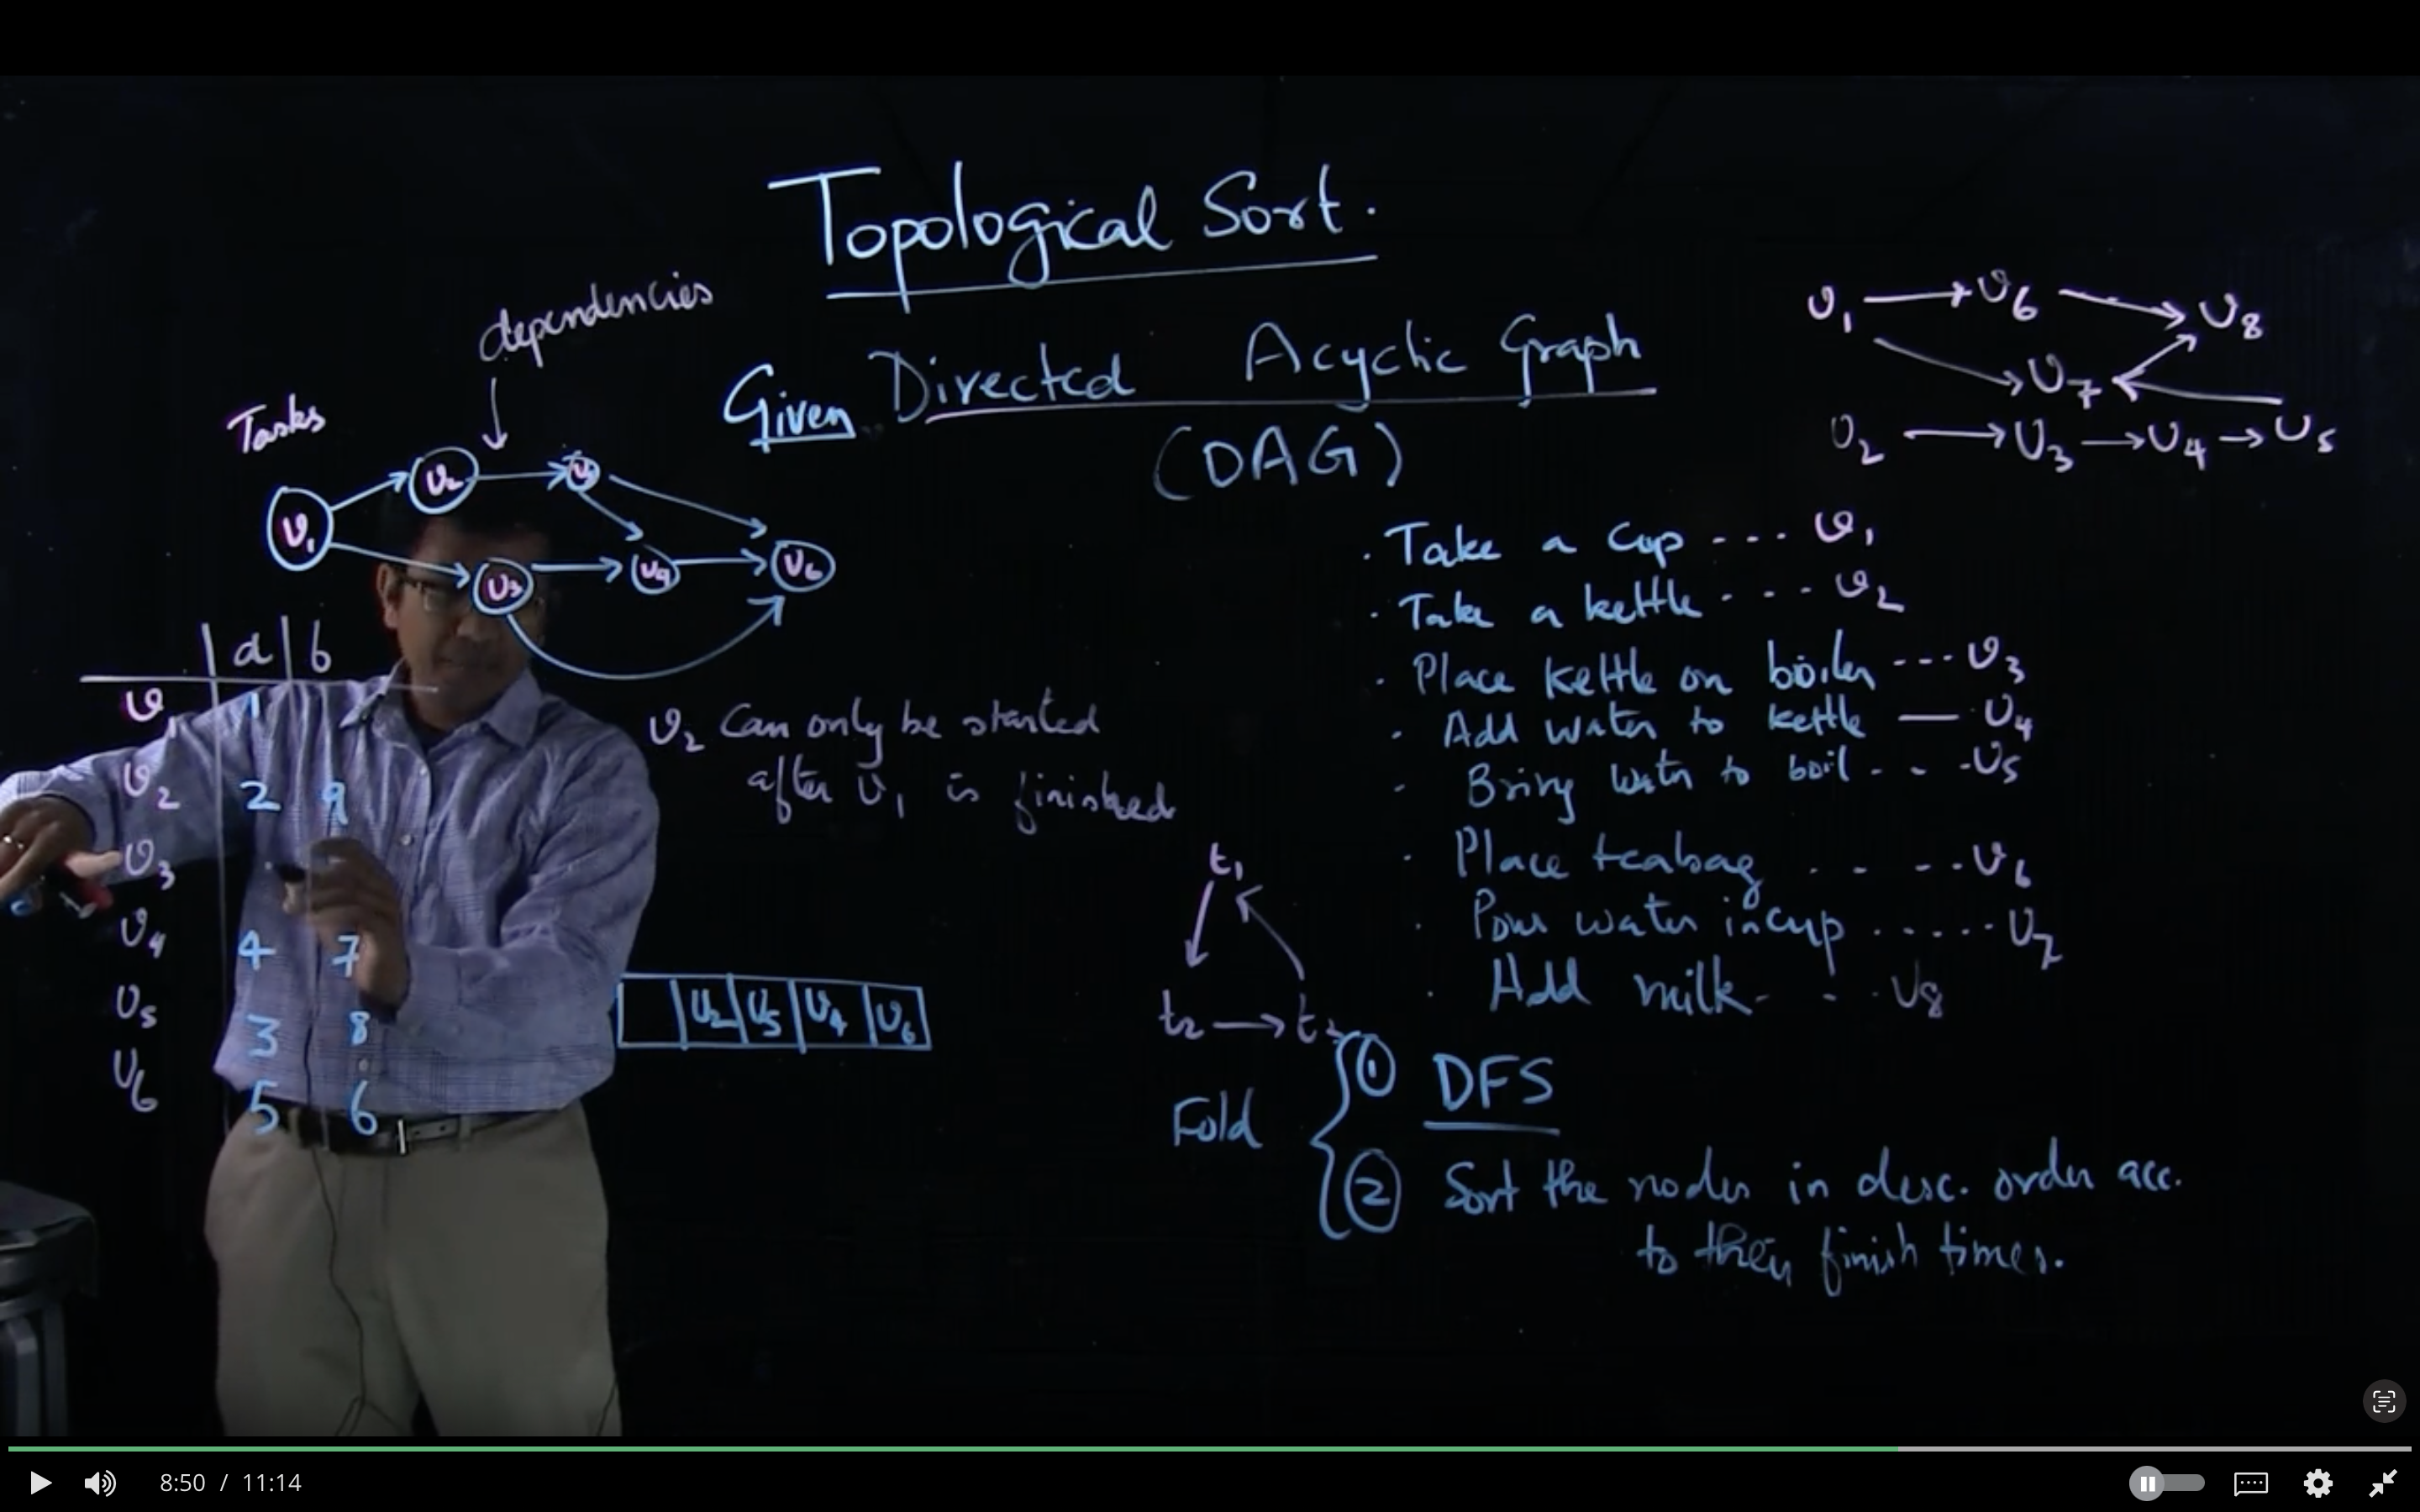 Topological Sort.
Given Directed Acyclic Graph
(DAG)
dependencies
Tasks
v1 v2 v5 v3 v4 v6
d b
v1 1
v2 2 9
v3
v4 4 7
v5 3 8
v6 5 6
v2 can only be started
after v1 is finished
v2 v5 v4 v6
t1
t2 t3
v1 v6 v8
v7
v2 v3 v4 v5
· Take a cup --- v1
· Take a kettle --- v2
· Place kettle on boiler --- v3
· Add water to kettle — v4
· Bring water to boil - - - v5
· Place teabag . - - .. v6
· Pour water in cup ...... v7
· Add milk - - . v8
Fold
① DFS
② Sort the nodes in desc. order acc.
to their finish times.
8:50 / 11:14